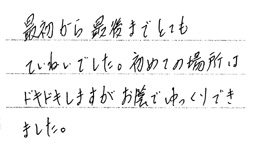 最初から最後までとても
ていねいでした。初めての場所は
ドキドキしますがお陰でゆっくりでき
ました。